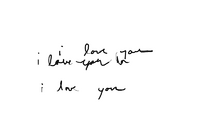 i love you
i love
i love you